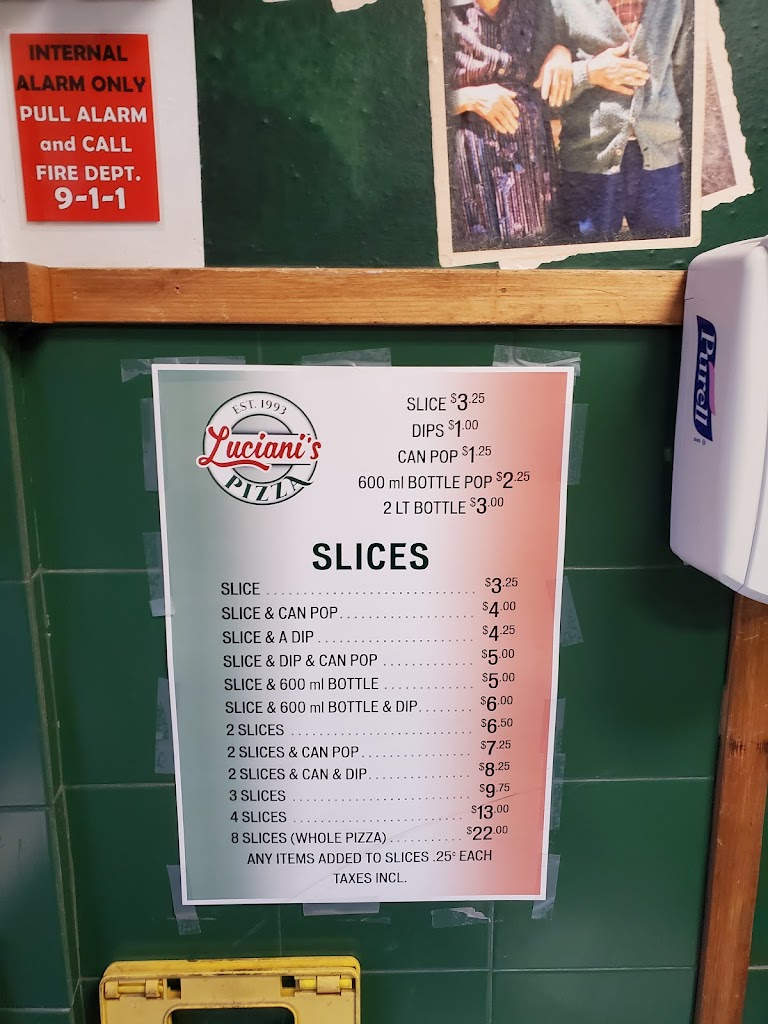 INTERNAL
ALARM ONLY
PULL ALARM
and CALL
FIRE DEPT.
9-1-1
Purell
EST. 1993
Luciani's
PIZZA
SLICE $3.25
DIPS $1.00
CAN POP $1.25
600 ml BOTTLE POP $2.25
2 LT BOTTLE $3.00
SLICES
SLICE ............................ $3.25
SLICE & CAN POP.................. $4.00
SLICE & A DIP..................... $4.25
SLICE & DIP & CAN POP ............ $5.00
SLICE & 600 ml BOTTLE ............ $5.00
SLICE & 600 ml BOTTLE & DIP....... $6.00
2 SLICES ........................ $6.50
2 SLICES & CAN POP............... $7.25
2 SLICES & CAN & DIP.............. $8.25
3 SLICES ........................ $9.75
4 SLICES ....................... $13.00
8 SLICES (WHOLE PIZZA) .......... $22.00
ANY ITEMS ADDED TO SLICES .25¢ EACH
TAXES INCL.